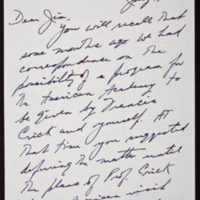 Dear Jim,
You will recall that
some months ago we had
correspondence on the
possibility of a program for
the American Academy to
be given by Francis
Crick and yourself. At
that time you suggested
deferring the matter until
the plans of Prof. Crick